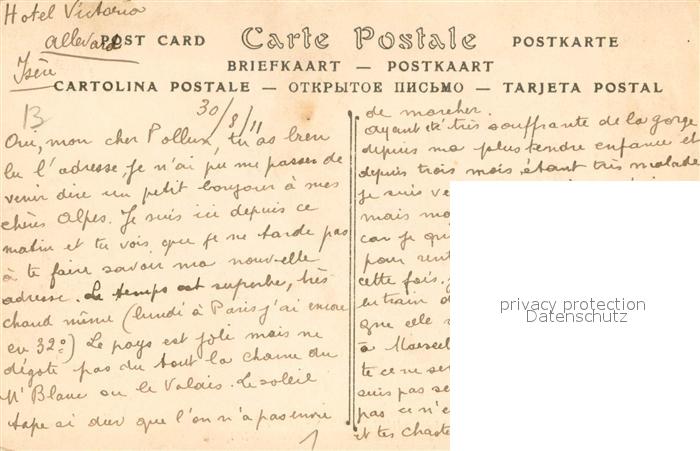 Hotel Victoria
Allevard
Isère
POST CARD Carte Postale POSTKARTE
BRIEFKAART — POSTKAART
CARTOLINA POSTALE — ОТКРЫТОЕ ПИСЬМО — TARJETA POSTAL
13
30/8/11
Oui, mon cher Pollux, tu as bien
lu l'adresse, je n'ai pu me passer de
venir dire un petit bonjour à mes
chères Alpes. Je suis ici depuis ce
matin et tu vois que je ne tarde pas
à te faire savoir ma nouvelle
adresse. Le temps est superbe, très
chaud même (lundi à Paris j'ai encore
eu 32°) Le pays est joli mais ne
dégote pas du tout la chaine du
Mt Blanc ou le Valais. Le soleil
tape si dur que l'on n'a pas envie
1
de marcher.
Ayant été très souffrante de la gorge
depuis ma plus tendre enfance et
depuis trois mois étant très malade
je suis ve
mais mo
car je qui
pour rent
cette fois. J
en train d
que elle
à Marseil
te ce ne se
suis pas se
pas ce n'e
et tes
privacy protection
Datenschutz